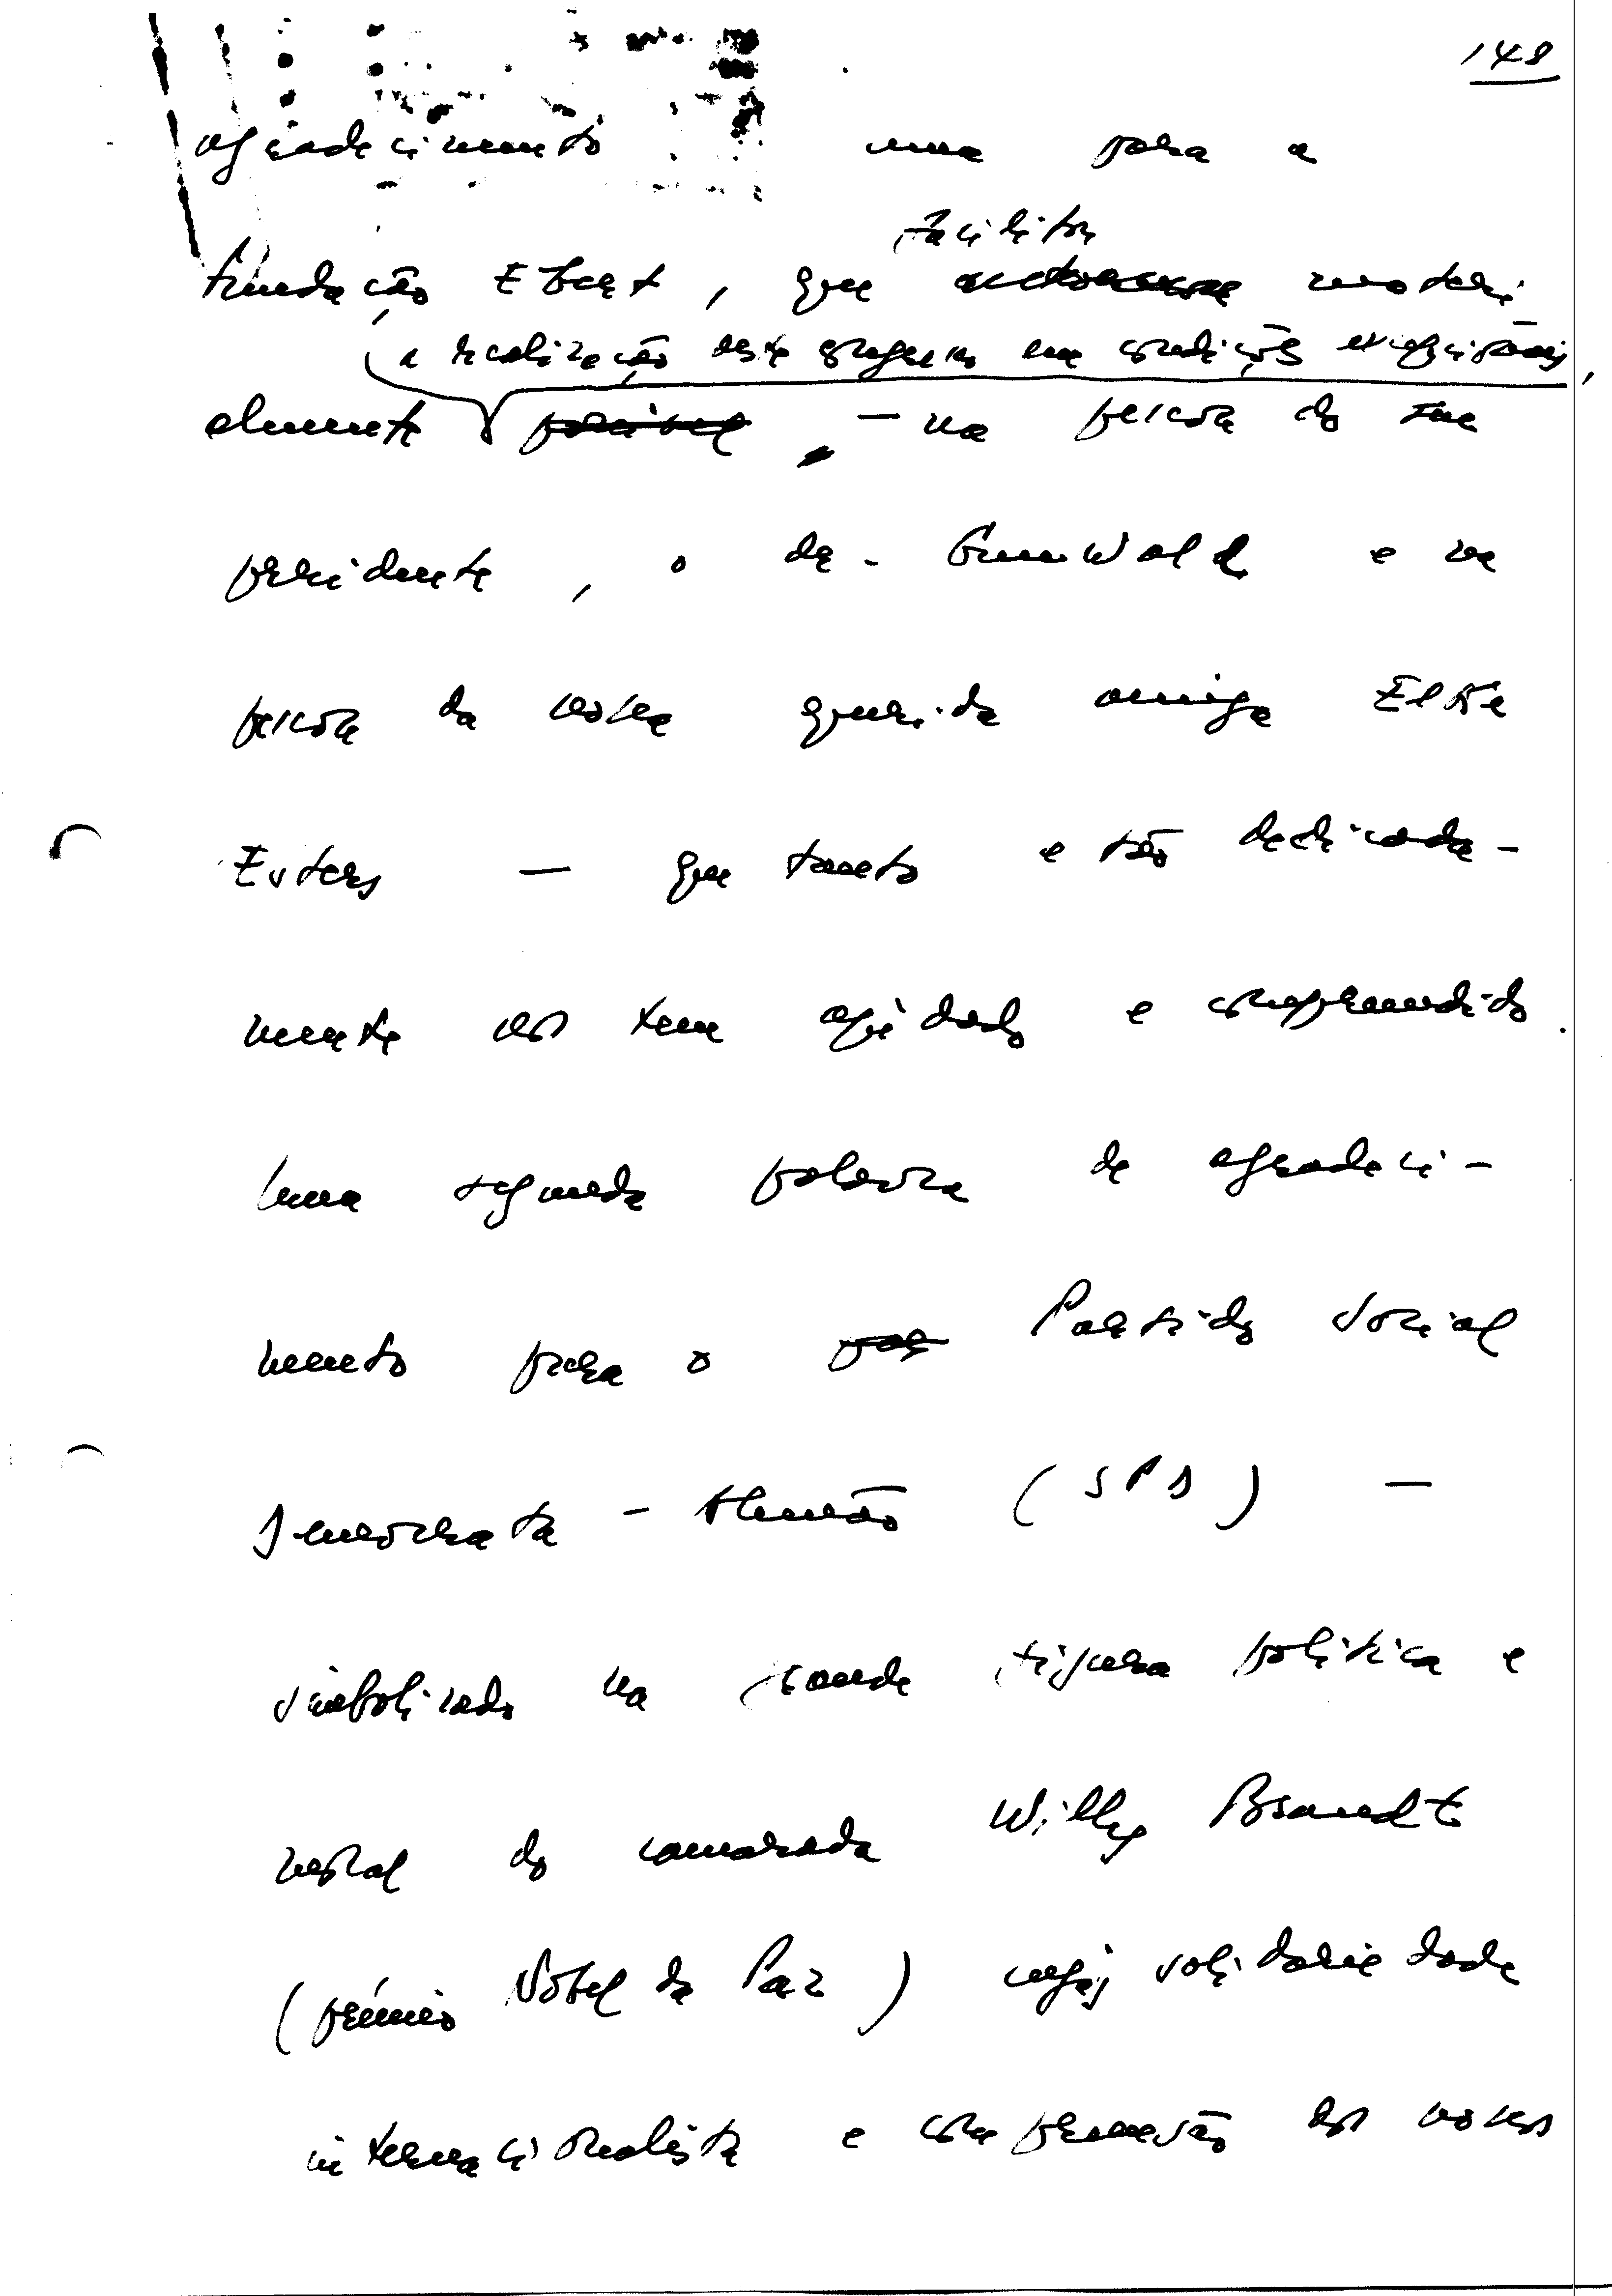 148
agradecimento uma para a
facilitou
Fundação Ebert, que materi
a realização deste congresso em condições excepcionais,
almente — na pessoa do seu
presidente, o dr. Grunwald e na
pessoa da nossa querida amiga Elke
Esters — que tanto e tão dedicada-
mente nos tem ajudado e compreendido.
Uma segunda palavra de agradeci-
mento para o Partido Social
Democrata - Alemão (SPD) —
simbolizado na grande figura política e
moral do camarada Willy Brandt
(prémio Nobel da Paz) cuja solidariedade
internacionalista e compreensão dos nossos